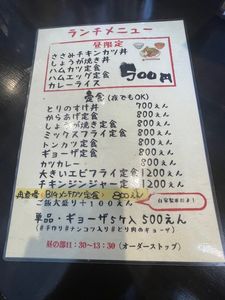 ランチメニュー
昼限定
ささみチキンカツ丼
しょうが焼き丼
ハムカツ定食
ハムエッグ定食
カレーライス
500円
定食(夜でもOK)
とりのすけ丼 700えん
からあげ定食 800えん
しょうが焼き定食 800えん
ミックスフライ定食 800えん
トンカツ定食 800えん
ギョーザ定食 800えん
カツカレー 800えん
大きいエビフライ定食 1200えん
チキンジンジャー定食 1200えん
BIGメンチカツ定食 800えん
ご飯大盛り+100えん
単品・ギョーザ5ケ入 500えん
(#手作り#ナンコツ入り#とり肉のギョーザ)
昼の部11:30~13:30(オーダーストップ)